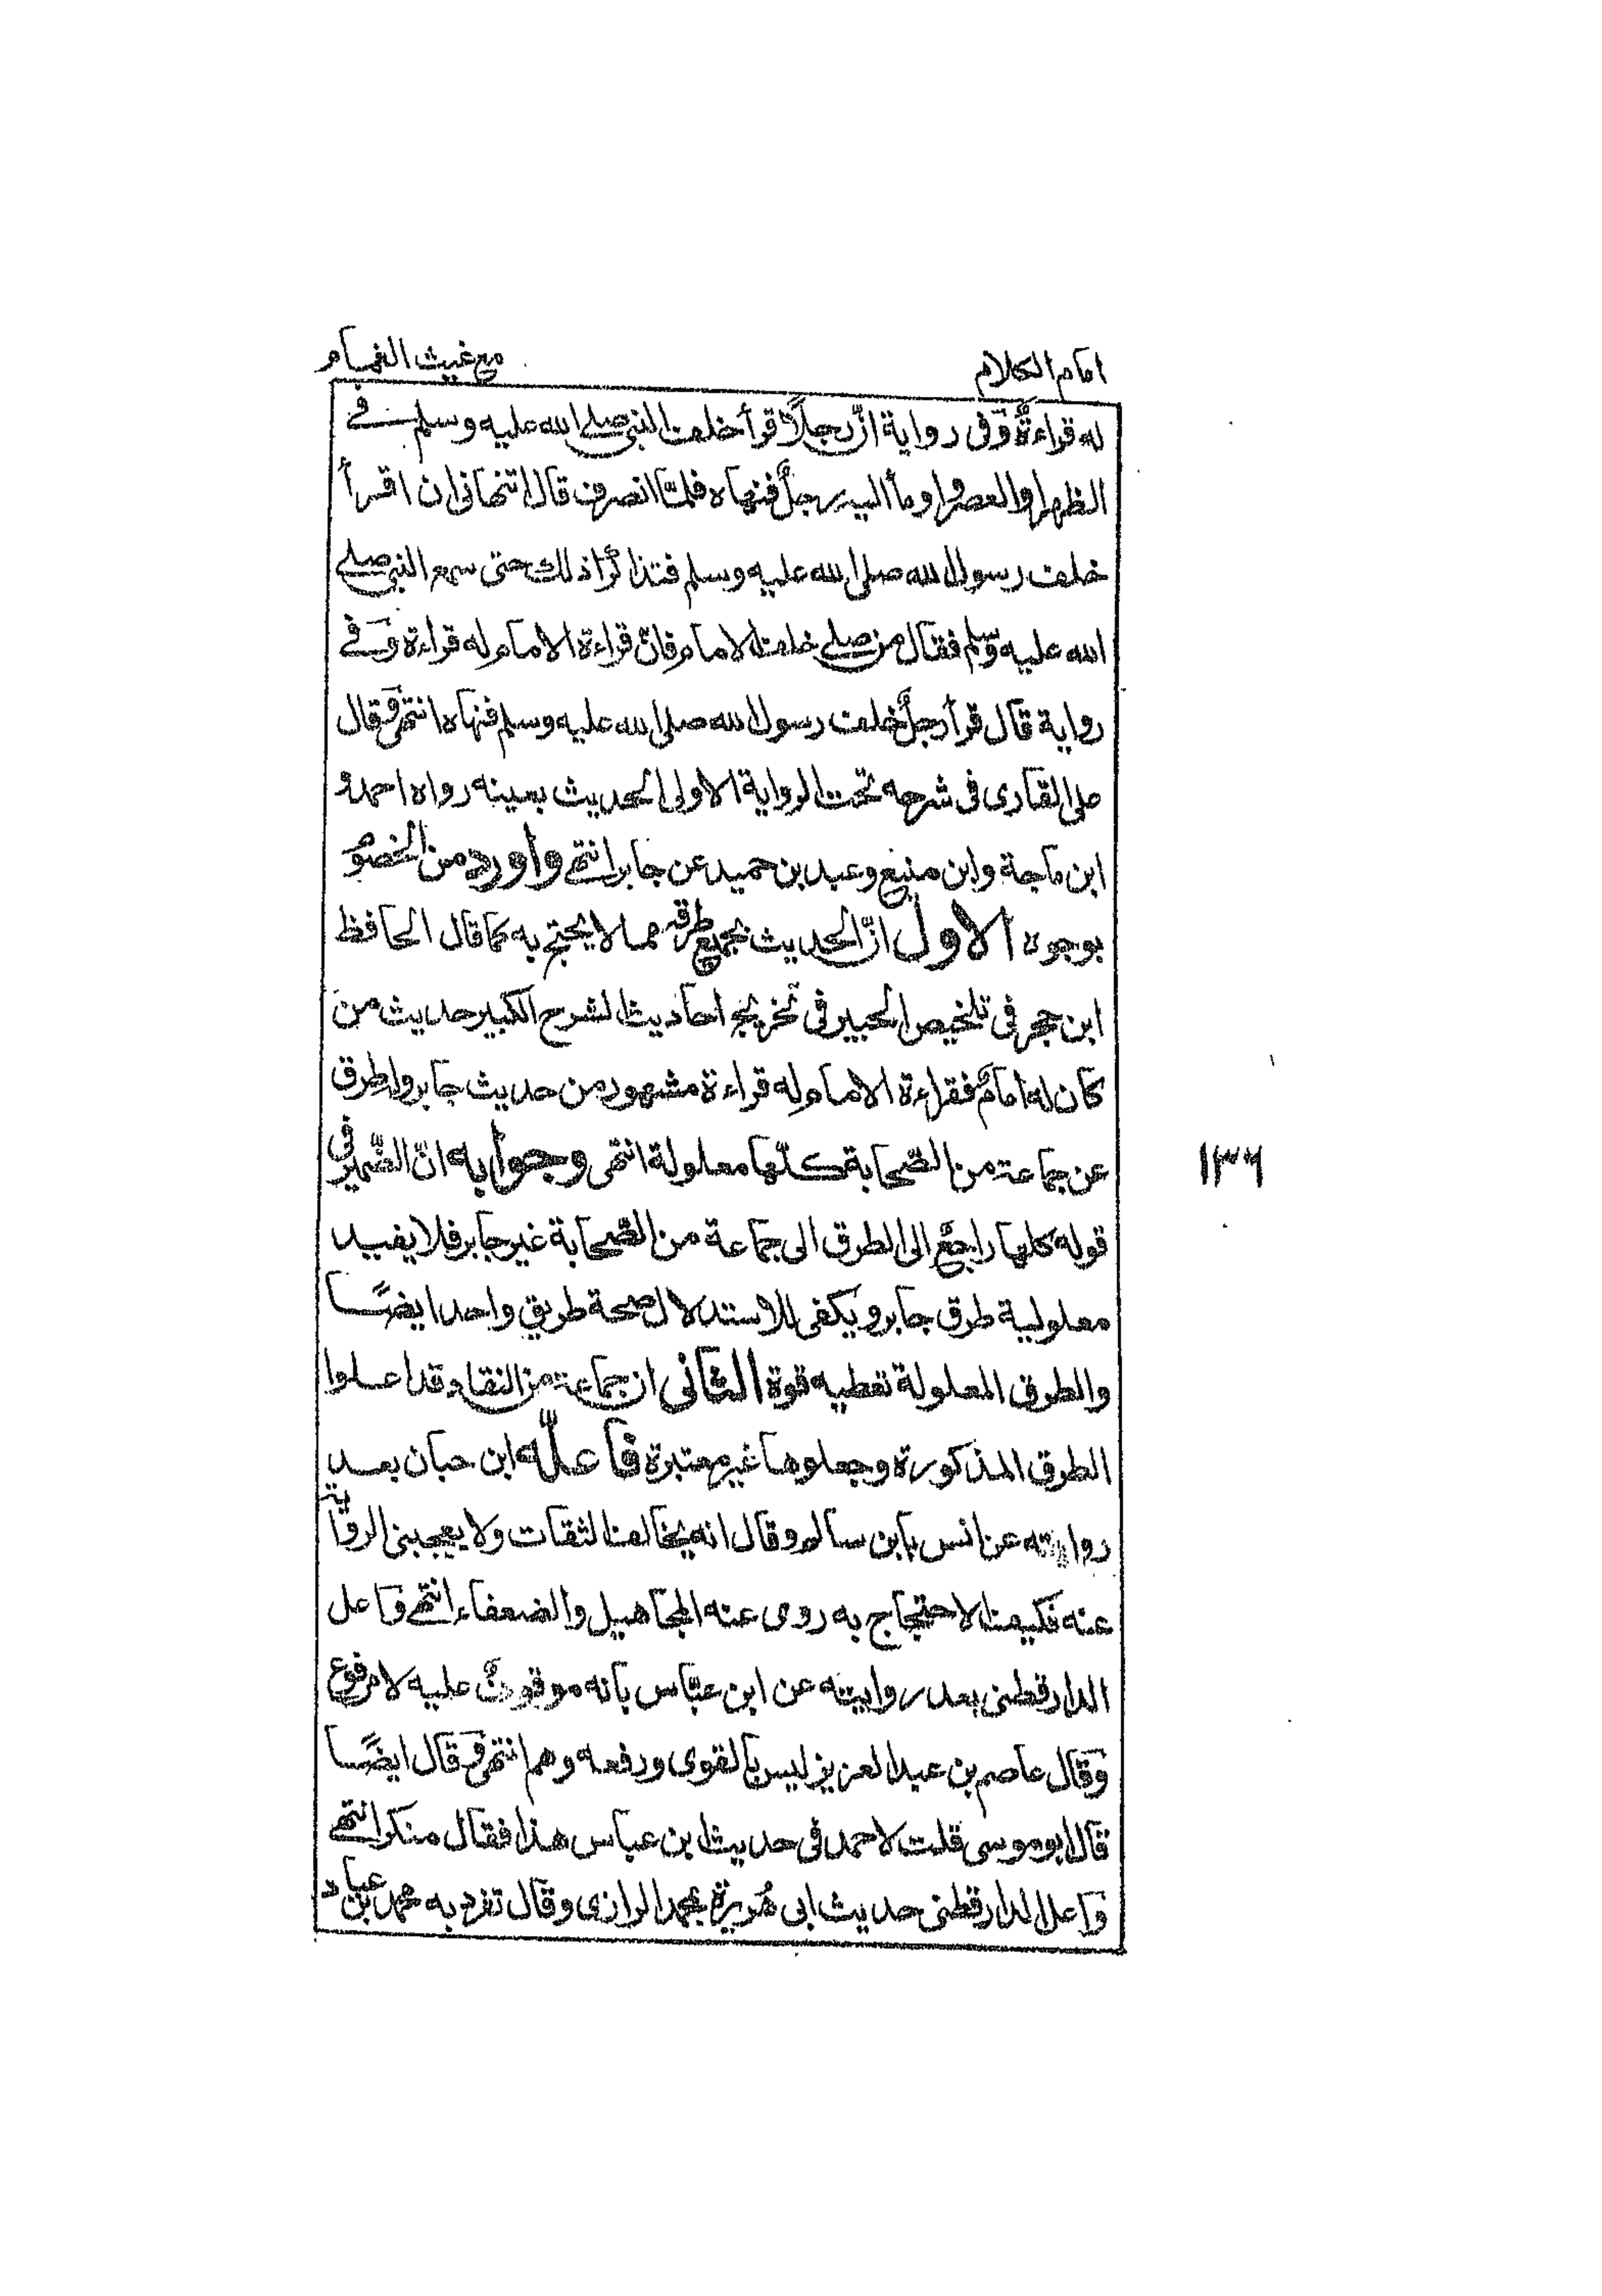 امام الكلام
مع غيث الغمام
له قراءةٌ وَفى رواية انّ رجلًا قرأ خلف النبى صلے الله عليه وسلم فے
الظهر او العصر واومأ اليه رجلٌ فنهاه فلمّا انصرف قال اتنهانى ان اقرأ
خلف رسول الله صلى الله عليه وسلم فتذاكرا ذلك حتى سمع النبى صلے
الله عليه وسلم فقال من صلے خلف الامام فانّ قراءة الامام له قراءة وَفے
رواية قال قرأ رجلٌ خلف رسول الله صلى الله عليه وسلم فنهاه انتهى وَقال
على القارى فى شرحه تحت الرواية الاولى الحديث بعينه رواه احمد و
ابن ماجة وابن منيع وعبد بن حميد عن جابر انتهے واورد من الخصوُ
بوجوه الاول انّ الحديث بجميع طرقه مما لا يحتج به كما قال الحافظ
ابن حجر فى تلخيص الحبير فى تخريج احاديث الشرح الكبير حديث من
كان له امامٌ فقراءة الامام له قراءة مشهور من حديث جابر وله طرق
عن جماعة من الصّحابة كلّها معلولة انتهى وجوابه انّ الضّمير فى
قوله كلها راجعٌ الى الطرق الى جماعة من الصّحابة غير جابر فلا يفيد
معلولية طرق جابر ويكفى للاستدلال صحة طريق واحد ايضًا
والطرق المعلولة تعطيه قوة الثانى ان جماعة من النقاد قد اعلوا
الطرق المذكورة وجعلوها غير معتبرة فاعلّه ابن حبان بعد
روايته عن انس بابن سالم وقال انه يخالف الثقات ولا يعجبنى الرواية
عنه فكيف الاحتجاج به روى عنه المجاهيل والضعفاء انتهے وَاعل
الدارقطنى بعد روايته عن ابن عبّاس بانه موقوفٌ عليه لا مرفوع
وَقال عاصم بن عبد العزيز ليس بالقوى ورفعه وهم انتهى وَقال ايضًا
قال ابو موسى قلت لاحمد فى حديث ابن عباس هذا فقال منكر انتهے
وَاعل الدارقطنى حديث ابى هُريرة بمحمد الرازى وقال تفرد به محمد بن عباد
١٣٦